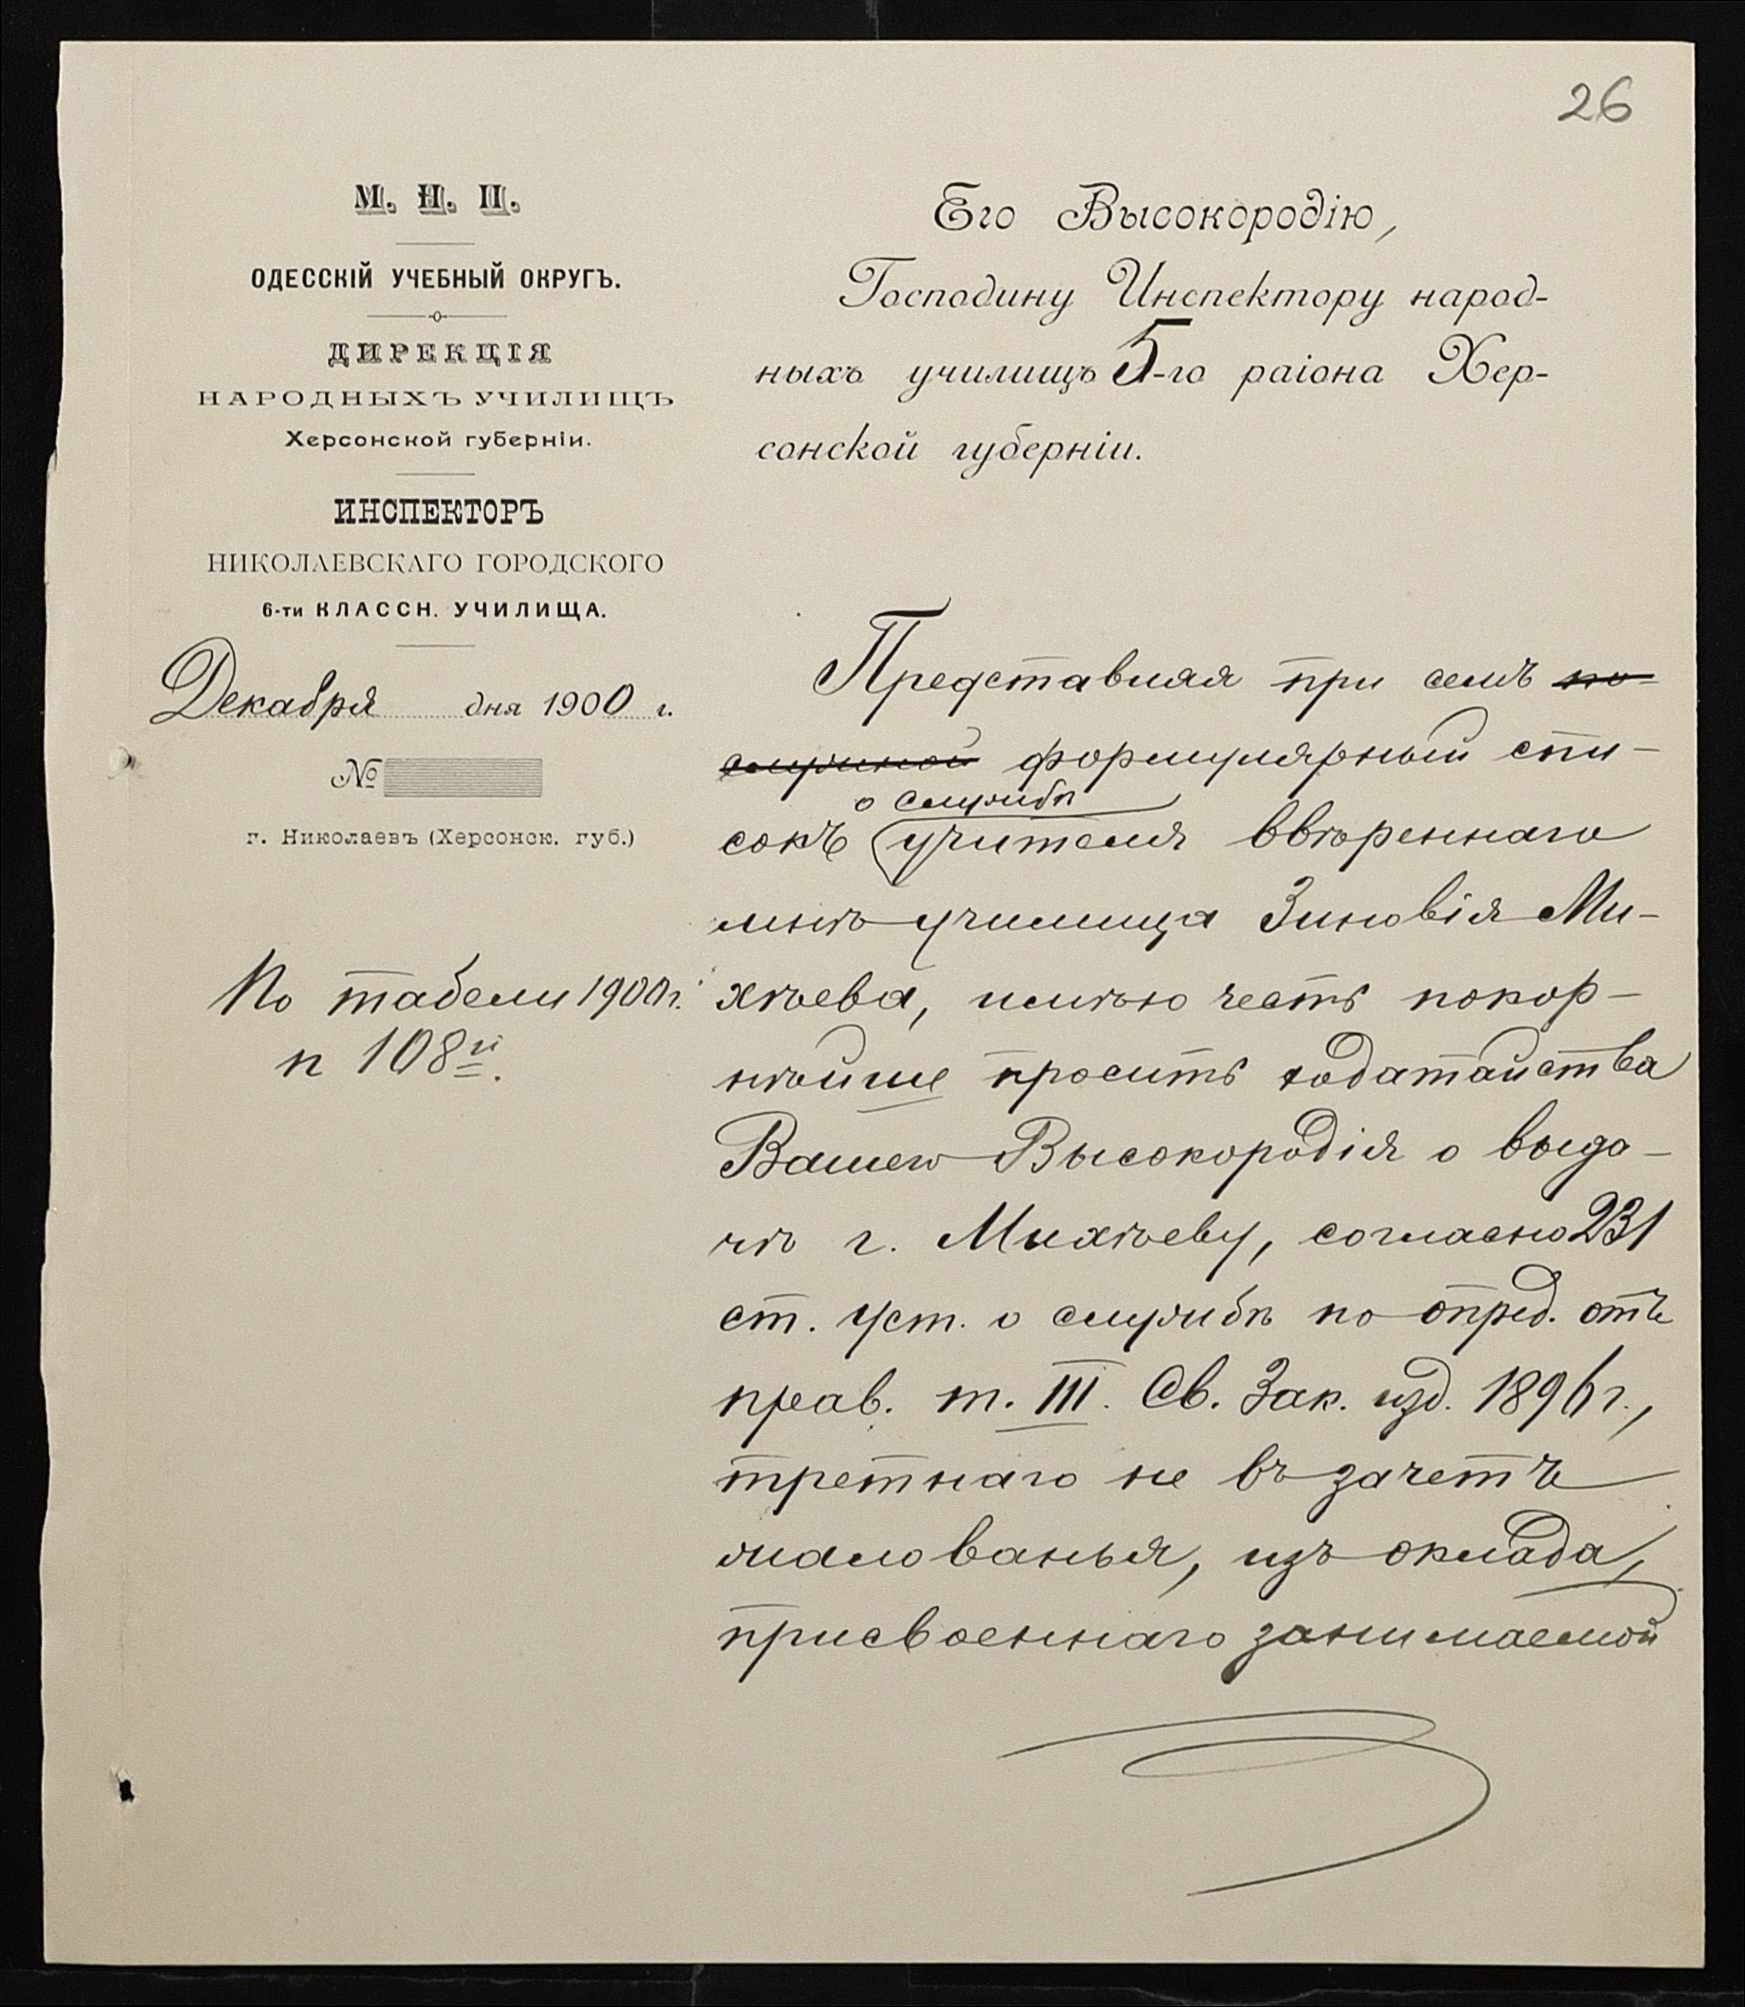 26
М. Н. П.
ОДЕССКІЙ УЧЕБНЫЙ ОКРУГЪ.
ДИРЕКЦІЯ
НАРОДНЫХЪ УЧИЛИЩЪ
Херсонской губерніи.
ИНСПЕКТОРЪ
НИКОЛАЕВСКАГО ГОРОДСКОГО
6-ти КЛАССН. УЧИЛИЩА.
Декабря дня 1900 г.
№
г. Николаевъ (Херсонск. губ.)
По табели 1900 г.
п 108й.
Его Высокородію,
Господину Инспектору народ-
ныхъ училищъ 5-го раіона Хер-
сонской губерніи.
Представляя при семъ по-
служной формулярный спи-
о службѣ
сокъ учителя ввѣреннаго
мнѣ училища Зиновія Ми-
хѣева, имѣю честь покор-
нѣйше просить ходатайства
Вашего Высокородія о выда-
чѣ г. Михѣеву, согласно 231
ст. Уст. о службѣ по опред. отъ
прав. т. III. Св. Зак. изд. 1896 г.,
третнаго не въ зачетъ
жалованья, изъ оклада,
присвоеннаго занимаемой